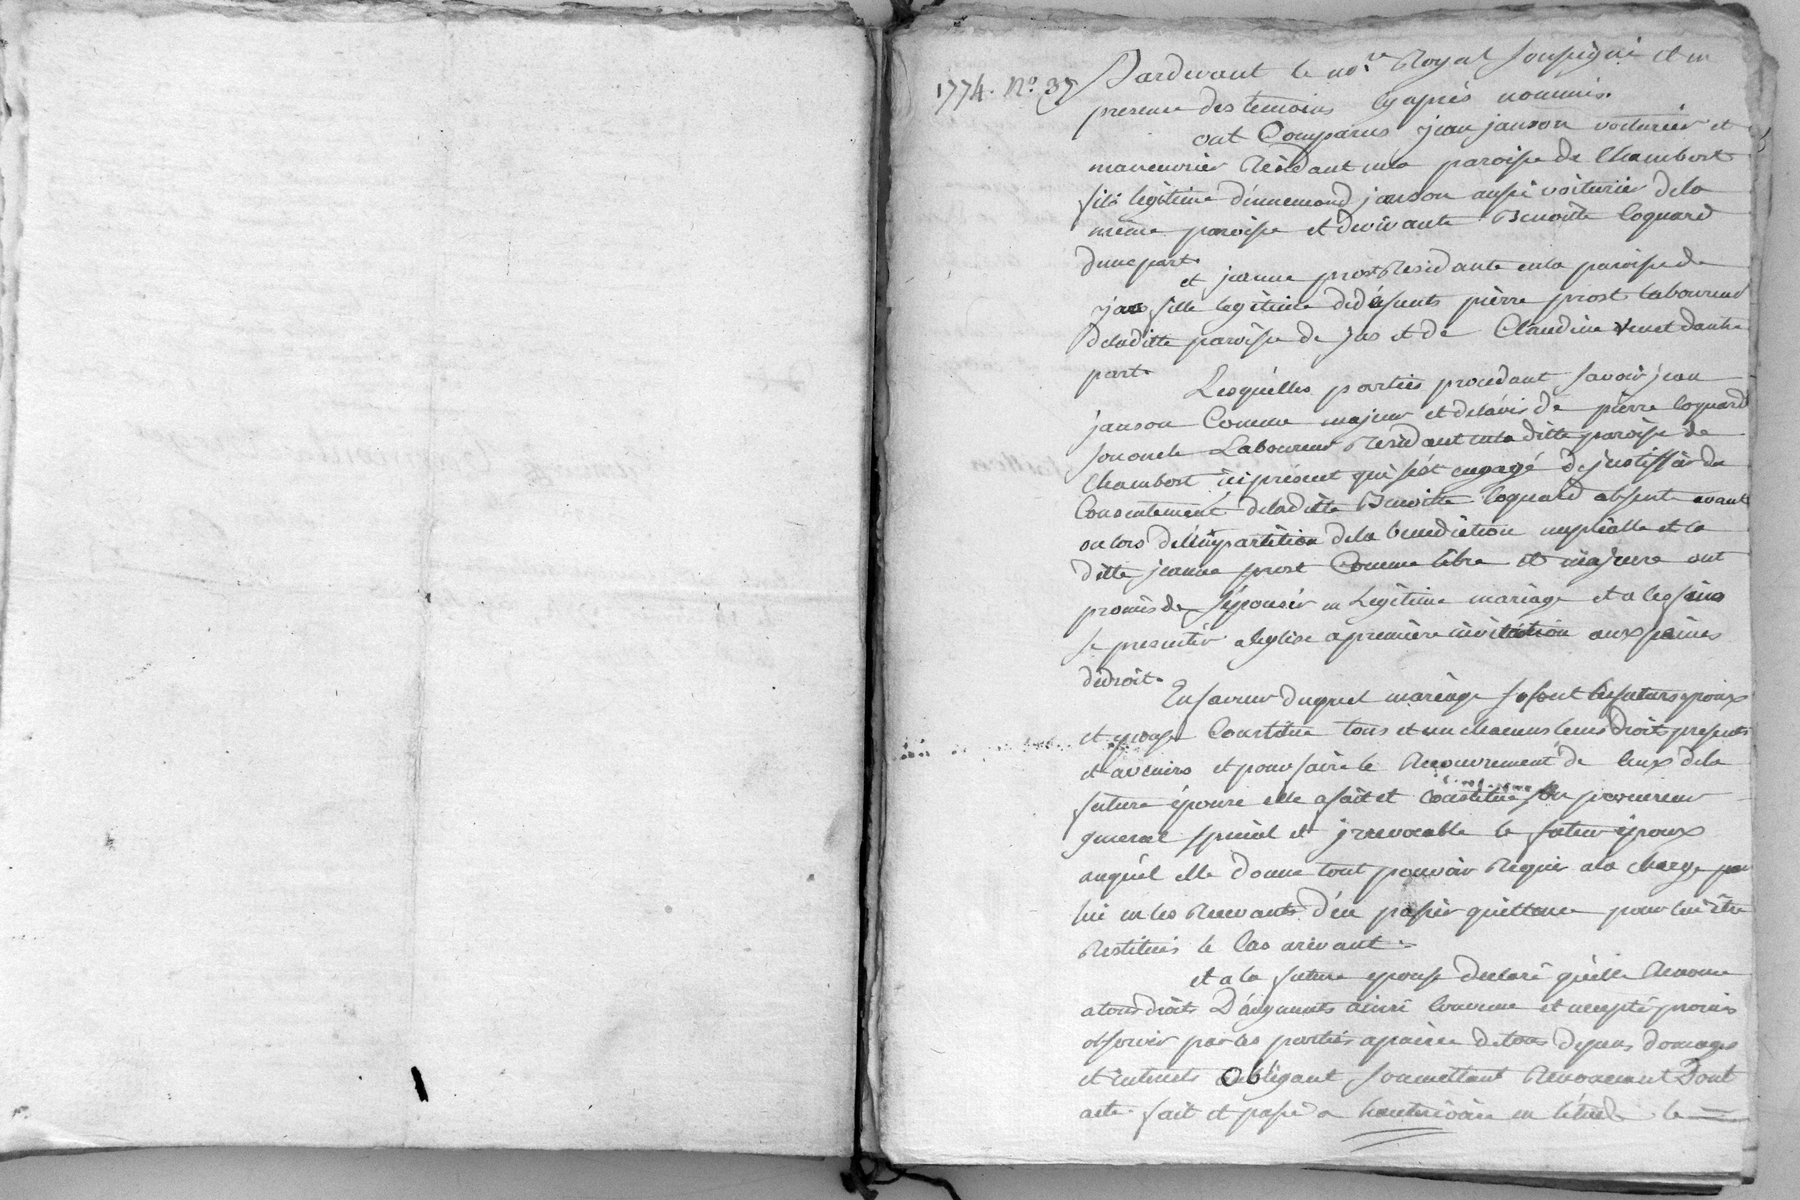 1774. No. 37
Pardevant le no.re Royal soussigné et en
presence des temoins cy après nommés.
ont Comparus jean janson voiturier et
maneuvrier Résidant en la paroisse de Chambost
fils légitime d'ennemond janson aussi voiturier de la
même paroisse et de vivante Benoitte Coquard
d'une part.
et jeanne prost Residante en la paroisse de
jas fille legitime de défunts pièrre prost laboureur
de la ditte paroisse de jas et de Claudine Venet dautre
part.
Lesquélles parties procedant savoir jean
janson Comme majeur et de lávis de pièrre Coquard
son oncle Laboureur Résidant en la ditte paroisse de
Chambost ici présent qui s'ést engagé de justiffiér du
Consentement de la ditte Benoitte Coquard absente avant
ou lors de l'impartition de la benediction nuptialle et la
ditte jeanne prost Comme libre et majeure ont
promis de s'épousér en Légitime mariage et a les fins
se presentér a léglise a première invitation aux peines
de droit.
En faveur duquel mariage se sont les futurs epoux
et epouse Constitué tous et un chacuns leurs droits presents
et avenirs et pour faire le Recouvrement de Ceux de la
future épouse elle a fait et Constitué son procureur
general spécial et jrrevocable le futur époux
auquél elle donne tout pouvoir Requis a la charge par
lui en les Recevants d'en passér quittance pour lui être
Restitués le Cas arivant.
et a la future epouse declaré qu'elle Renonce
a tous droits D'augments ainsi Convenu et accepté promis
observér par les parties a peine de tous depens domages
et interests obligeant soumettant Renonceant Dont
acte. fait et passé a hauterivoire en létude le